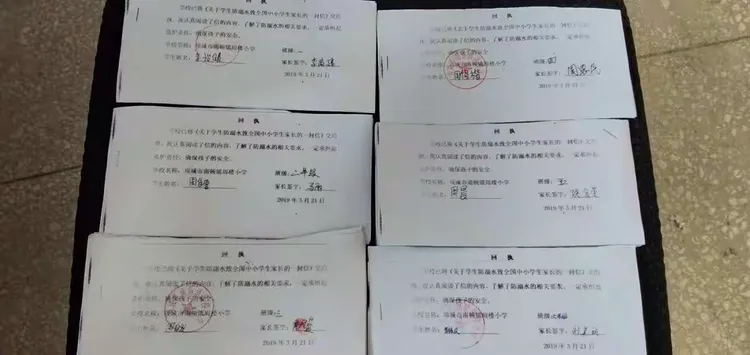 回 执
学校已将《关于学生防溺水致全国中小学生家长的一封信》交给
我,我认真阅读了信的内容,了解了防溺水的相关要求,一定承担起
监护责任,确保孩子的安全。
学校名称:项城市南顿镇郑楼小学 班级:一
学生姓名: 家长签字:
2019年3月21日
学校已将《关于学生防溺水致全国中小学生家长的一封信》交给
我,我认真阅读了信的内容,了解了防溺水的相关要求,一定承担起
监护责任,确保孩子的安全。
学校名称:项城市南顿镇郑楼小学 班级:四
学生姓名: 家长签字:
2019年3月21日
回 执
学校已将《关于学生防溺水致全国中小学生家长的一封信》交给
我,我认真阅读了信的内容,了解了防溺水的相关要求,一定承担起
监护责任,确保孩子的安全。
学校名称:项城市南顿镇郑楼小学 班级:二年级
学生姓名: 家长签字:
2019年3月21日
回 执
学校已将《关于学生防溺水致全国中小学生家长的一封信》交给
我,我认真阅读了信的内容,了解了防溺水的相关要求,一定承担起
监护责任,确保孩子的安全。
学校名称:项城市南顿镇郑楼小学 班级:五
学生姓名: 家长签字:
2019年3月21日
回 执
学校已将《关于学生防溺水致全国中小学生家长的一封信》交给
我,我认真阅读了信的内容,了解了防溺水的相关要求,一定承担起
监护责任,确保孩子的安全。
学校名称:项城市南顿镇郑楼小学 班级:三
学生姓名: 家长签字:
2019年3月21日
回 执
学校已将《关于学生防溺水致全国中小学生家长的一封信》交给
我,我认真阅读了信的内容,了解了防溺水的相关要求,一定承担起
监护责任,确保孩子的安全。
学校名称:项城市南顿镇郑楼小学 班级:六年级
学生姓名: 家长签字:
2019年3月21日